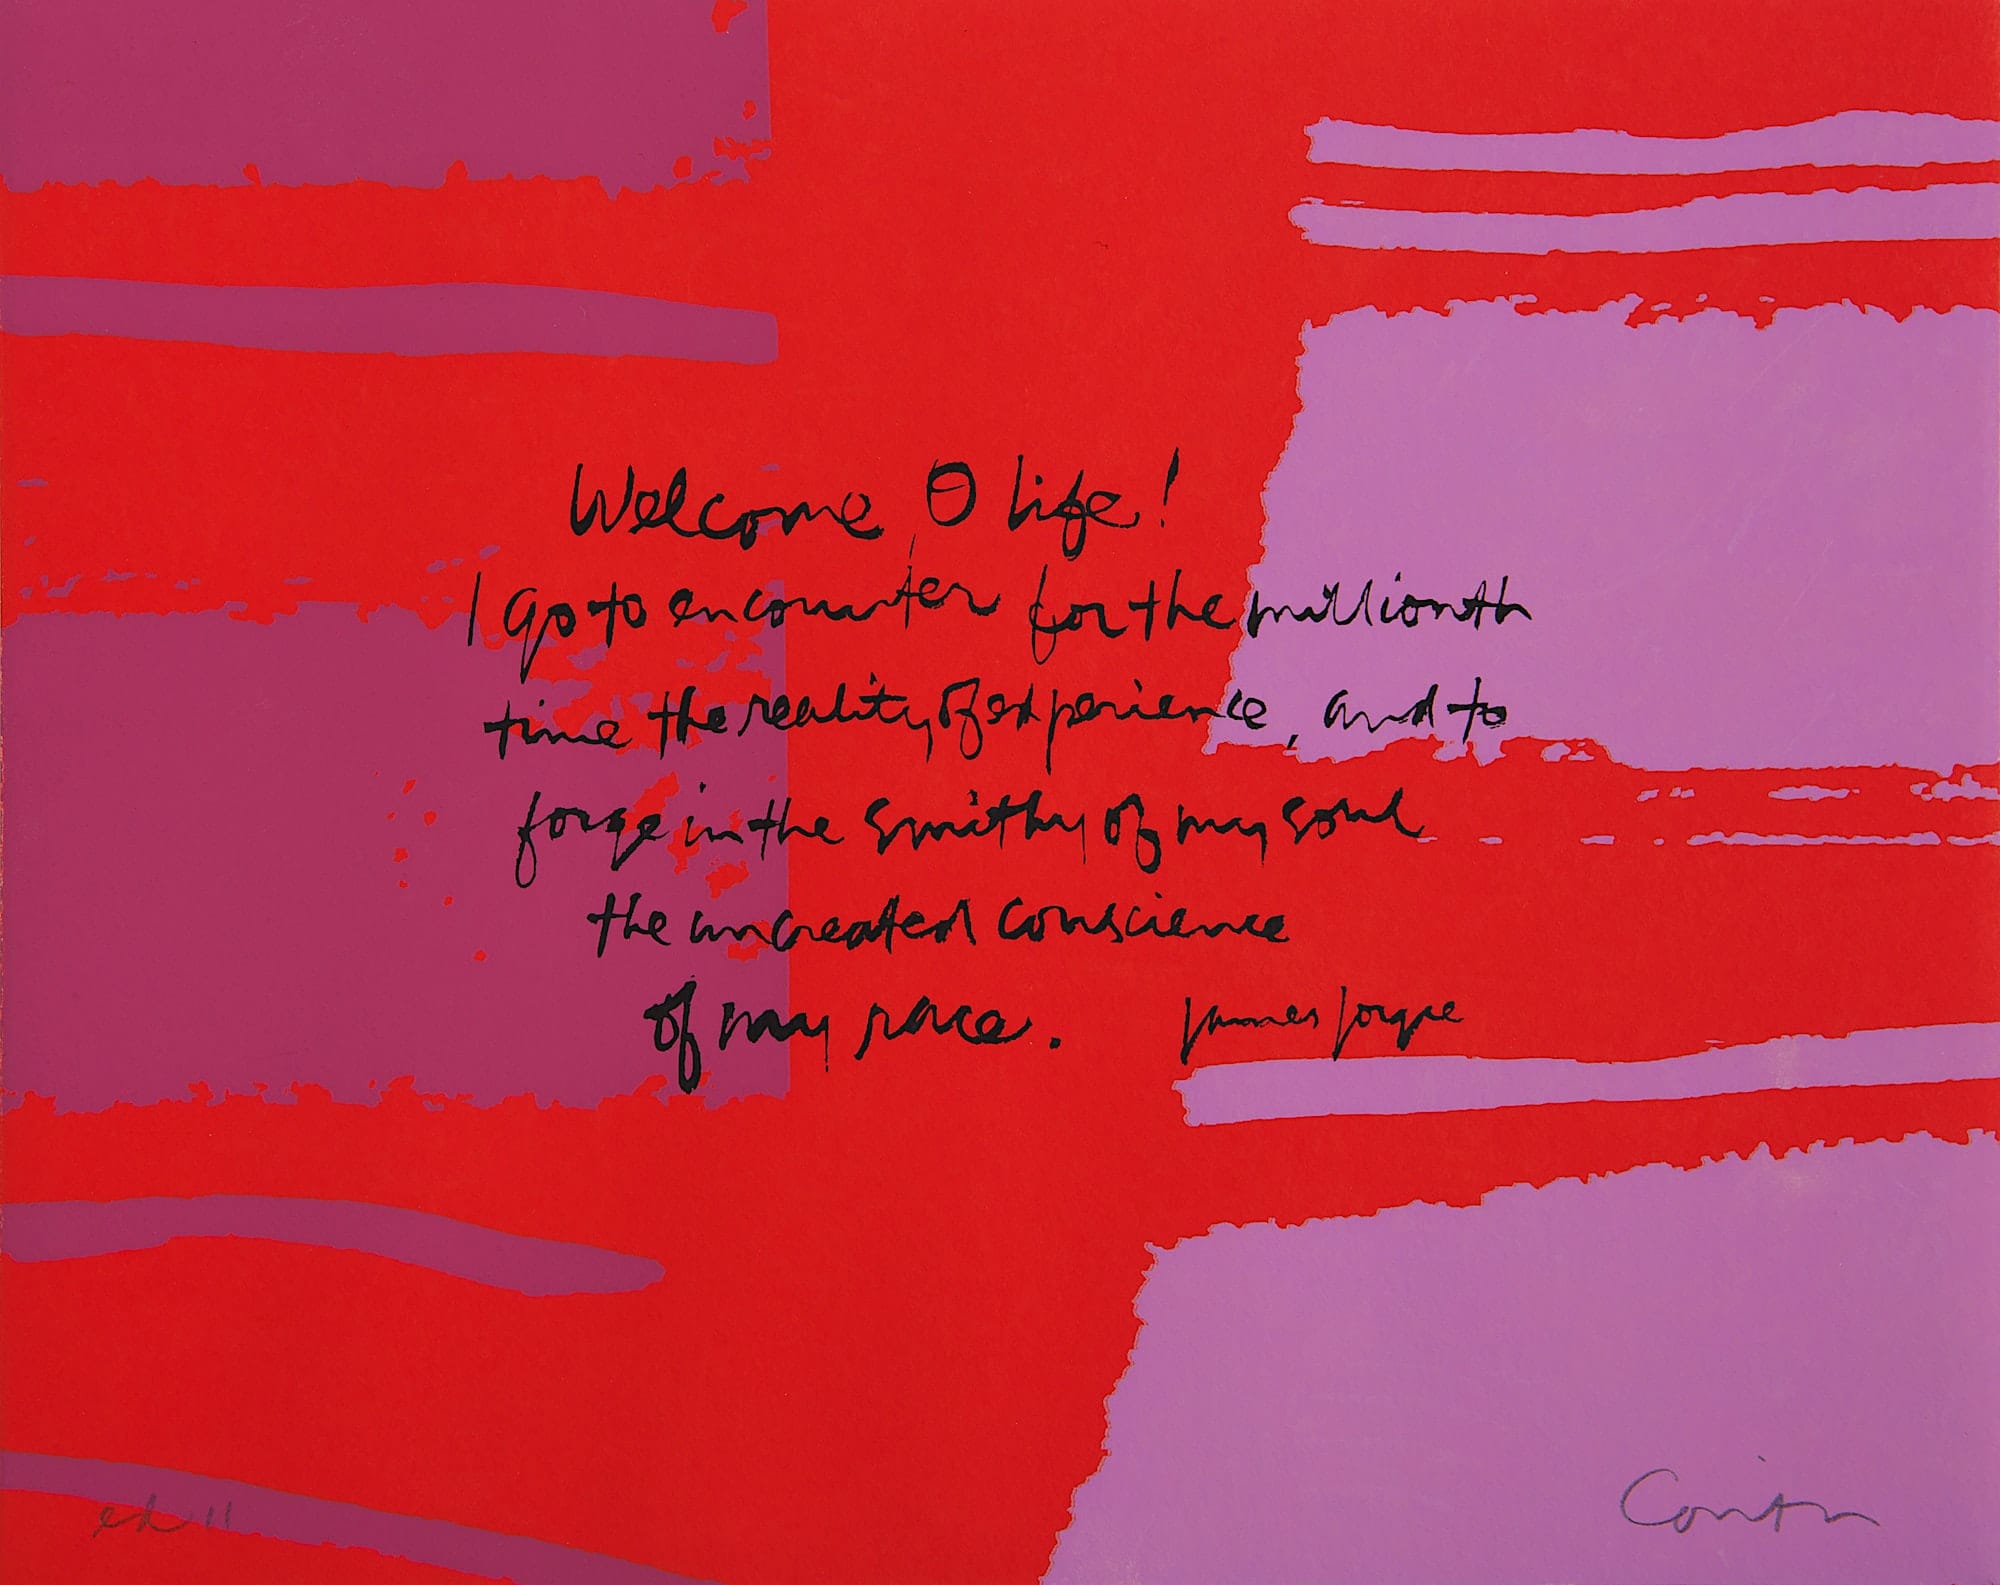 Welcome, O life!
I go to encounter for the millionth
time the reality of experience, and to
forge in the smithy of my soul
the uncreated conscience
of my race. James Joyce
ed II
Corita